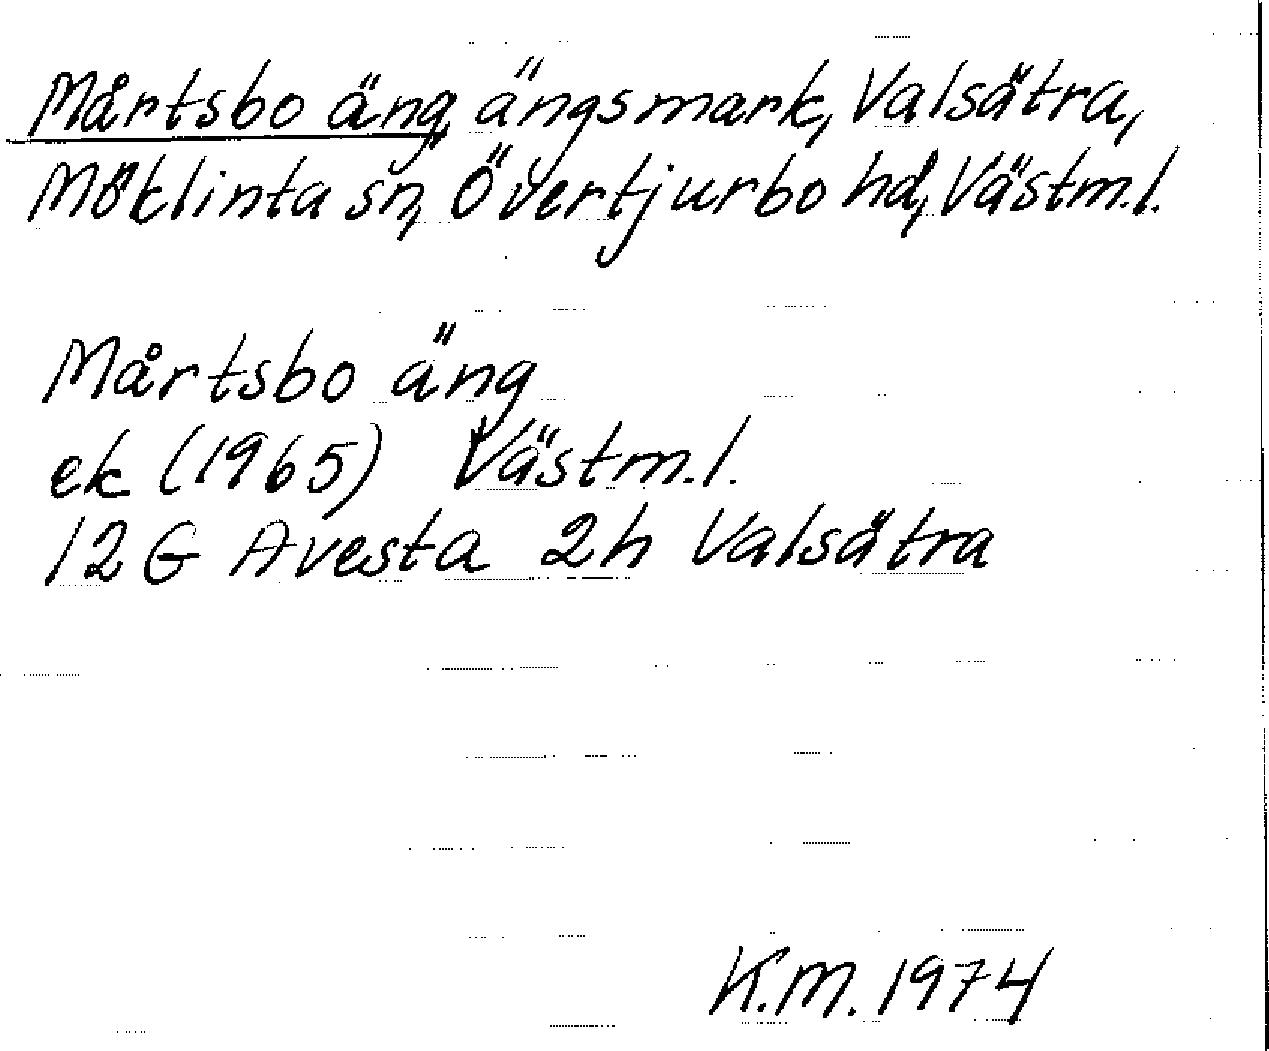 Mårtsbo äng, ängsmark, Valsätra,
Möklinta sn, Övertjurbo hd, Västm.l.
Mårtsbo äng
ek (1965) Västm.l.
12 G Avesta 2h Valsätra
K.M. 1974